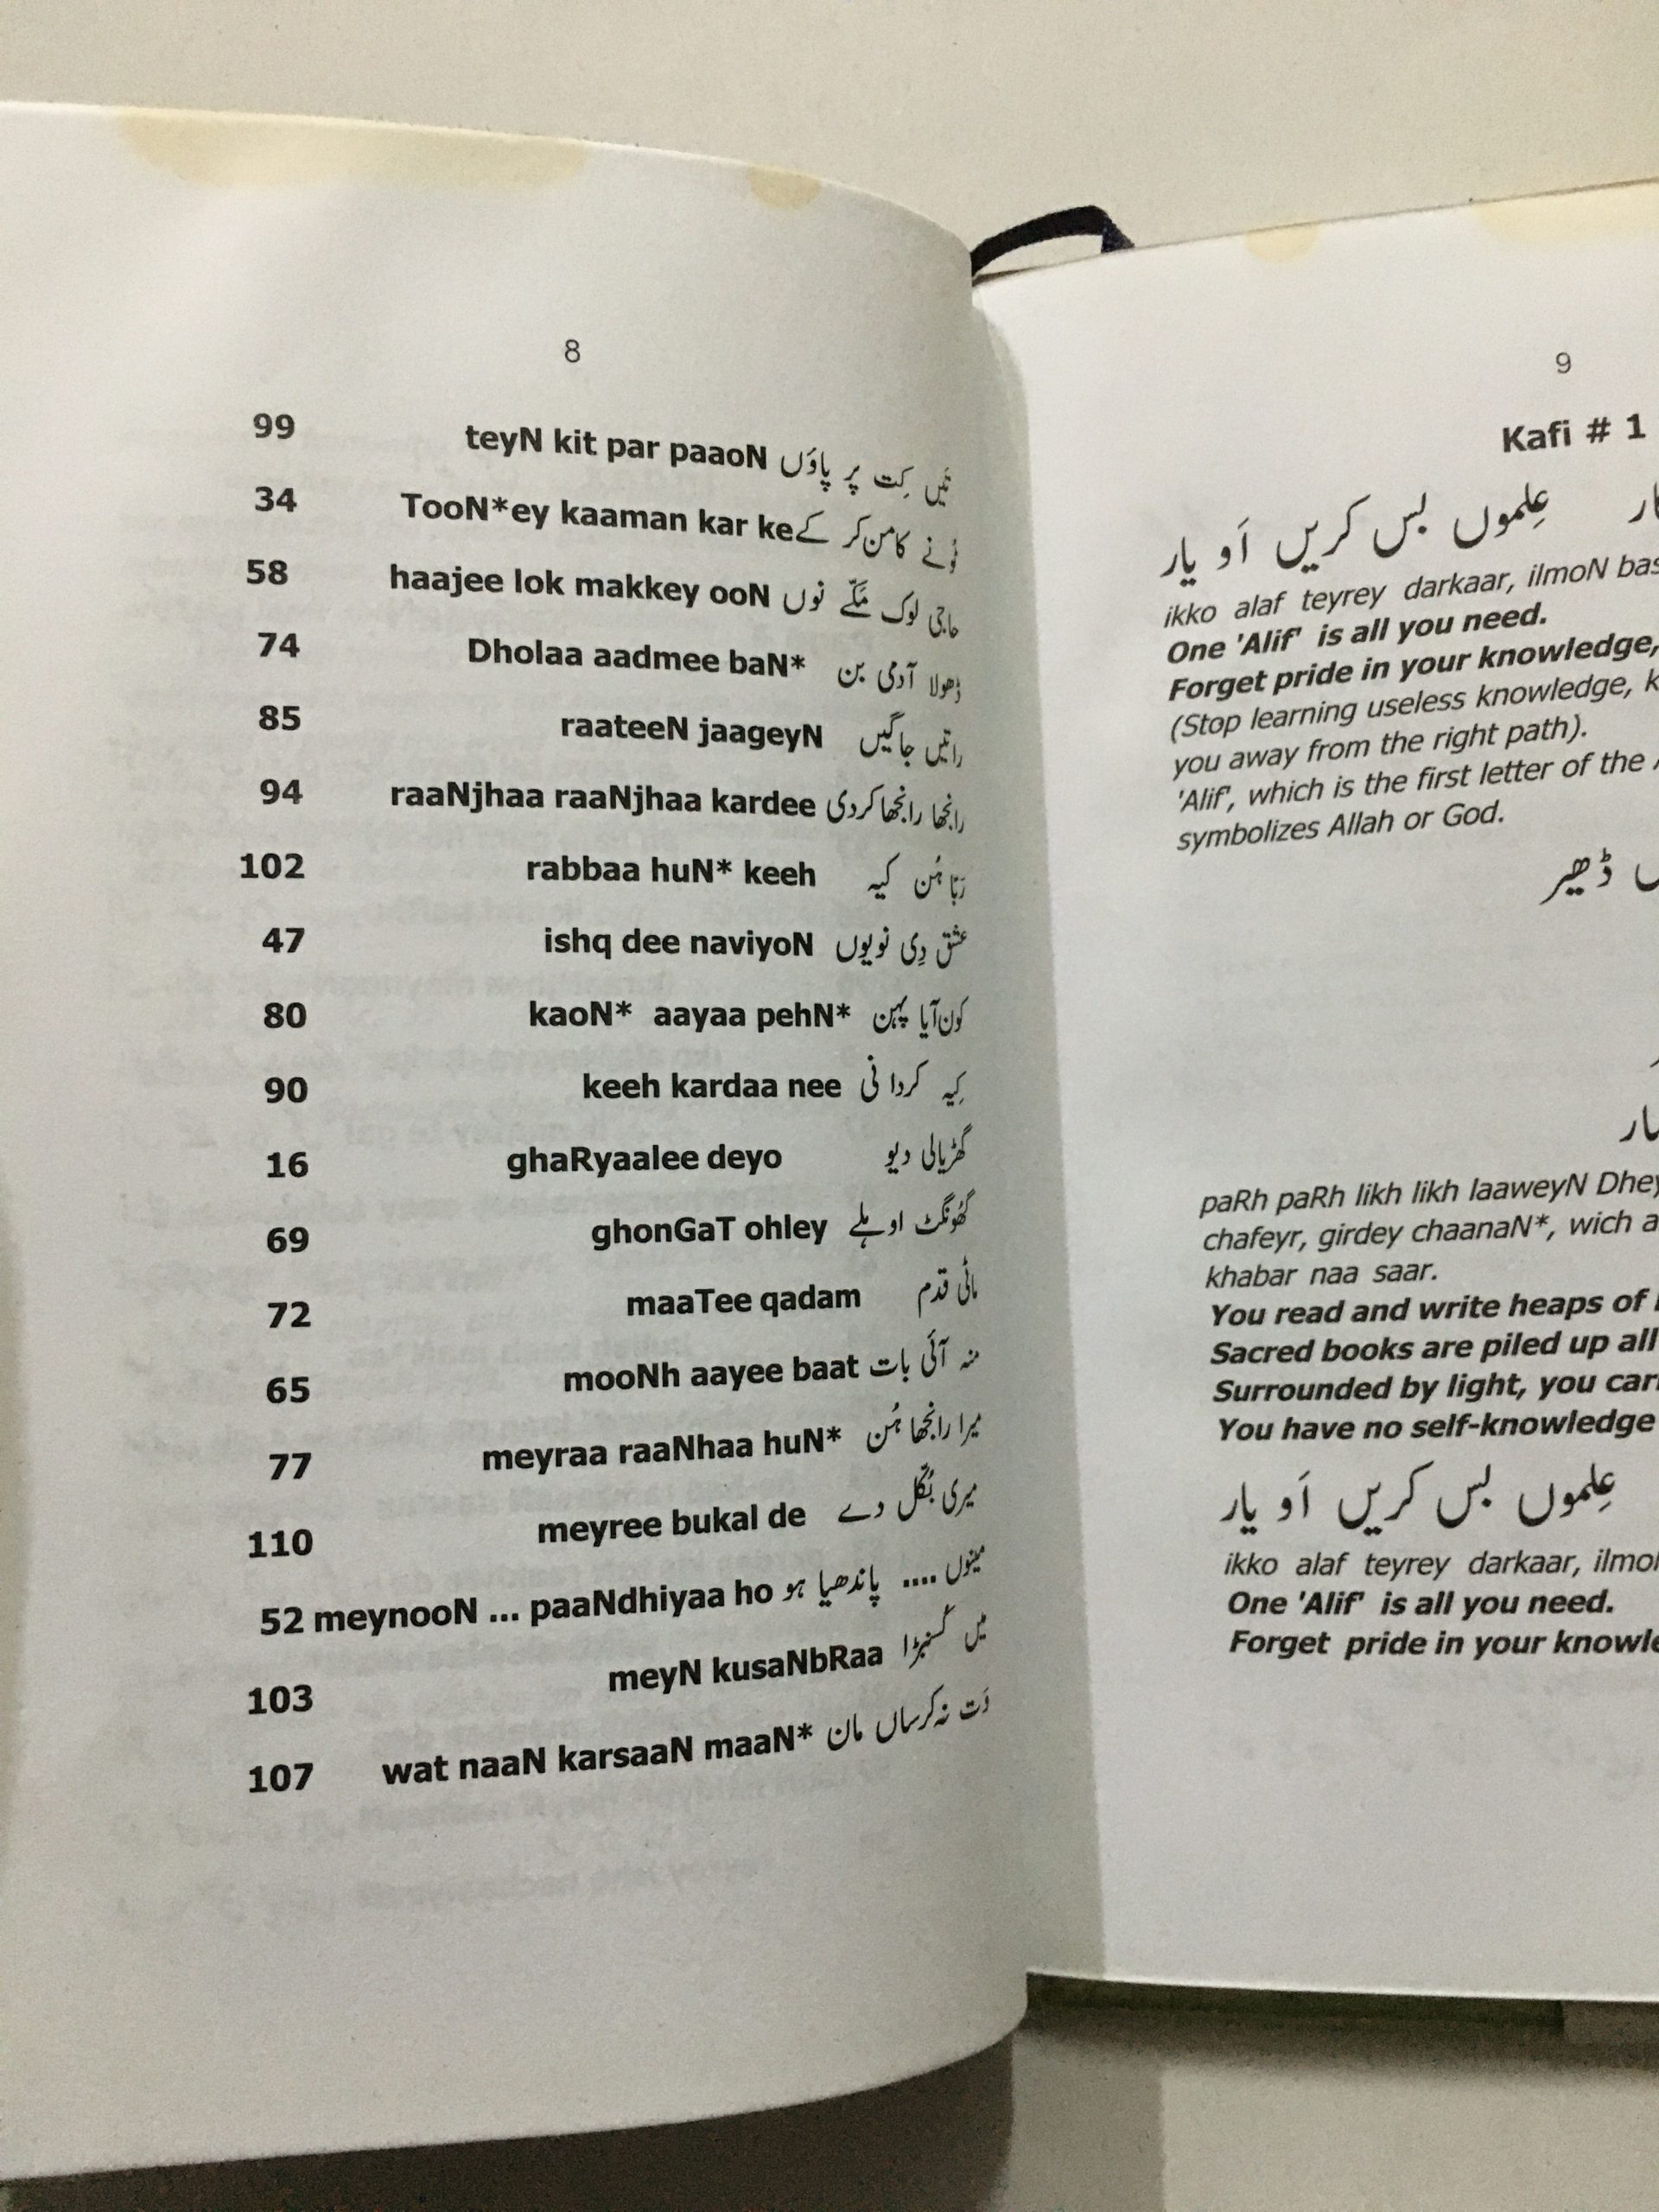 8
99 teyN kit par paaoN تَیں کِت پر پاؤں
34 TooN*ey kaaman kar ke ٹُونے کامن کر کے
58 haajee lok makkey ooN حاجی لوک مَکّے نوں
74 Dholaa aadmee baN* ڈھولا آدمی بن
85 raateeN jaageyN راتیں جاگیں
94 raaNjhaa raaNjhaa kardee رانجھا رانجھا کردی
102 rabbaa huN* keeh ربّا ہُن کیہ
47 ishq dee naviyoN عشق دِی نویوں
80 kaoN* aayaa pehN* کون آیا پہن
90 keeh kardaa nee کِیہ کردا نی
16 ghaRyaalee deyo گھڑیالی دیو
69 ghonGaT ohley گھُونگٹ اوہلے
72 maaTee qadam ماٹی قدم
65 mooNh aayee baat منہ آئی بات
77 meyraa raaNhaa huN* میرا رانجھا ہُن
110 meyree bukal de میری بُکّل دے
52 meynooN ... paaNdhiyaa ho مینوں .... پاندھیا ہو
103 meyN kusaNbRaa میں کُسنبڑا
107 wat naaN karsaaN maaN* وَت نہ کرساں مان
9
Kafi # 1
عِلموں بس کریں اَو یار
ikko alaf teyrey darkaar, ilmoN bas
One 'Alif' is all you need.
Forget pride in your knowledge,
(Stop learning useless knowledge, k
you away from the right path).
'Alif', which is the first letter of the
symbolizes Allah or God.
ڈھیر
paRh paRh likh likh laaweyN Dhey
chafeyr, girdey chaanaN*, wich a
khabar naa saar.
You read and write heaps of
Sacred books are piled up all
Surrounded by light, you carr
You have no self-knowledge
عِلموں بس کریں اَو یار
ikko alaf teyrey darkaar, ilmo
One 'Alif' is all you need.
Forget pride in your knowle